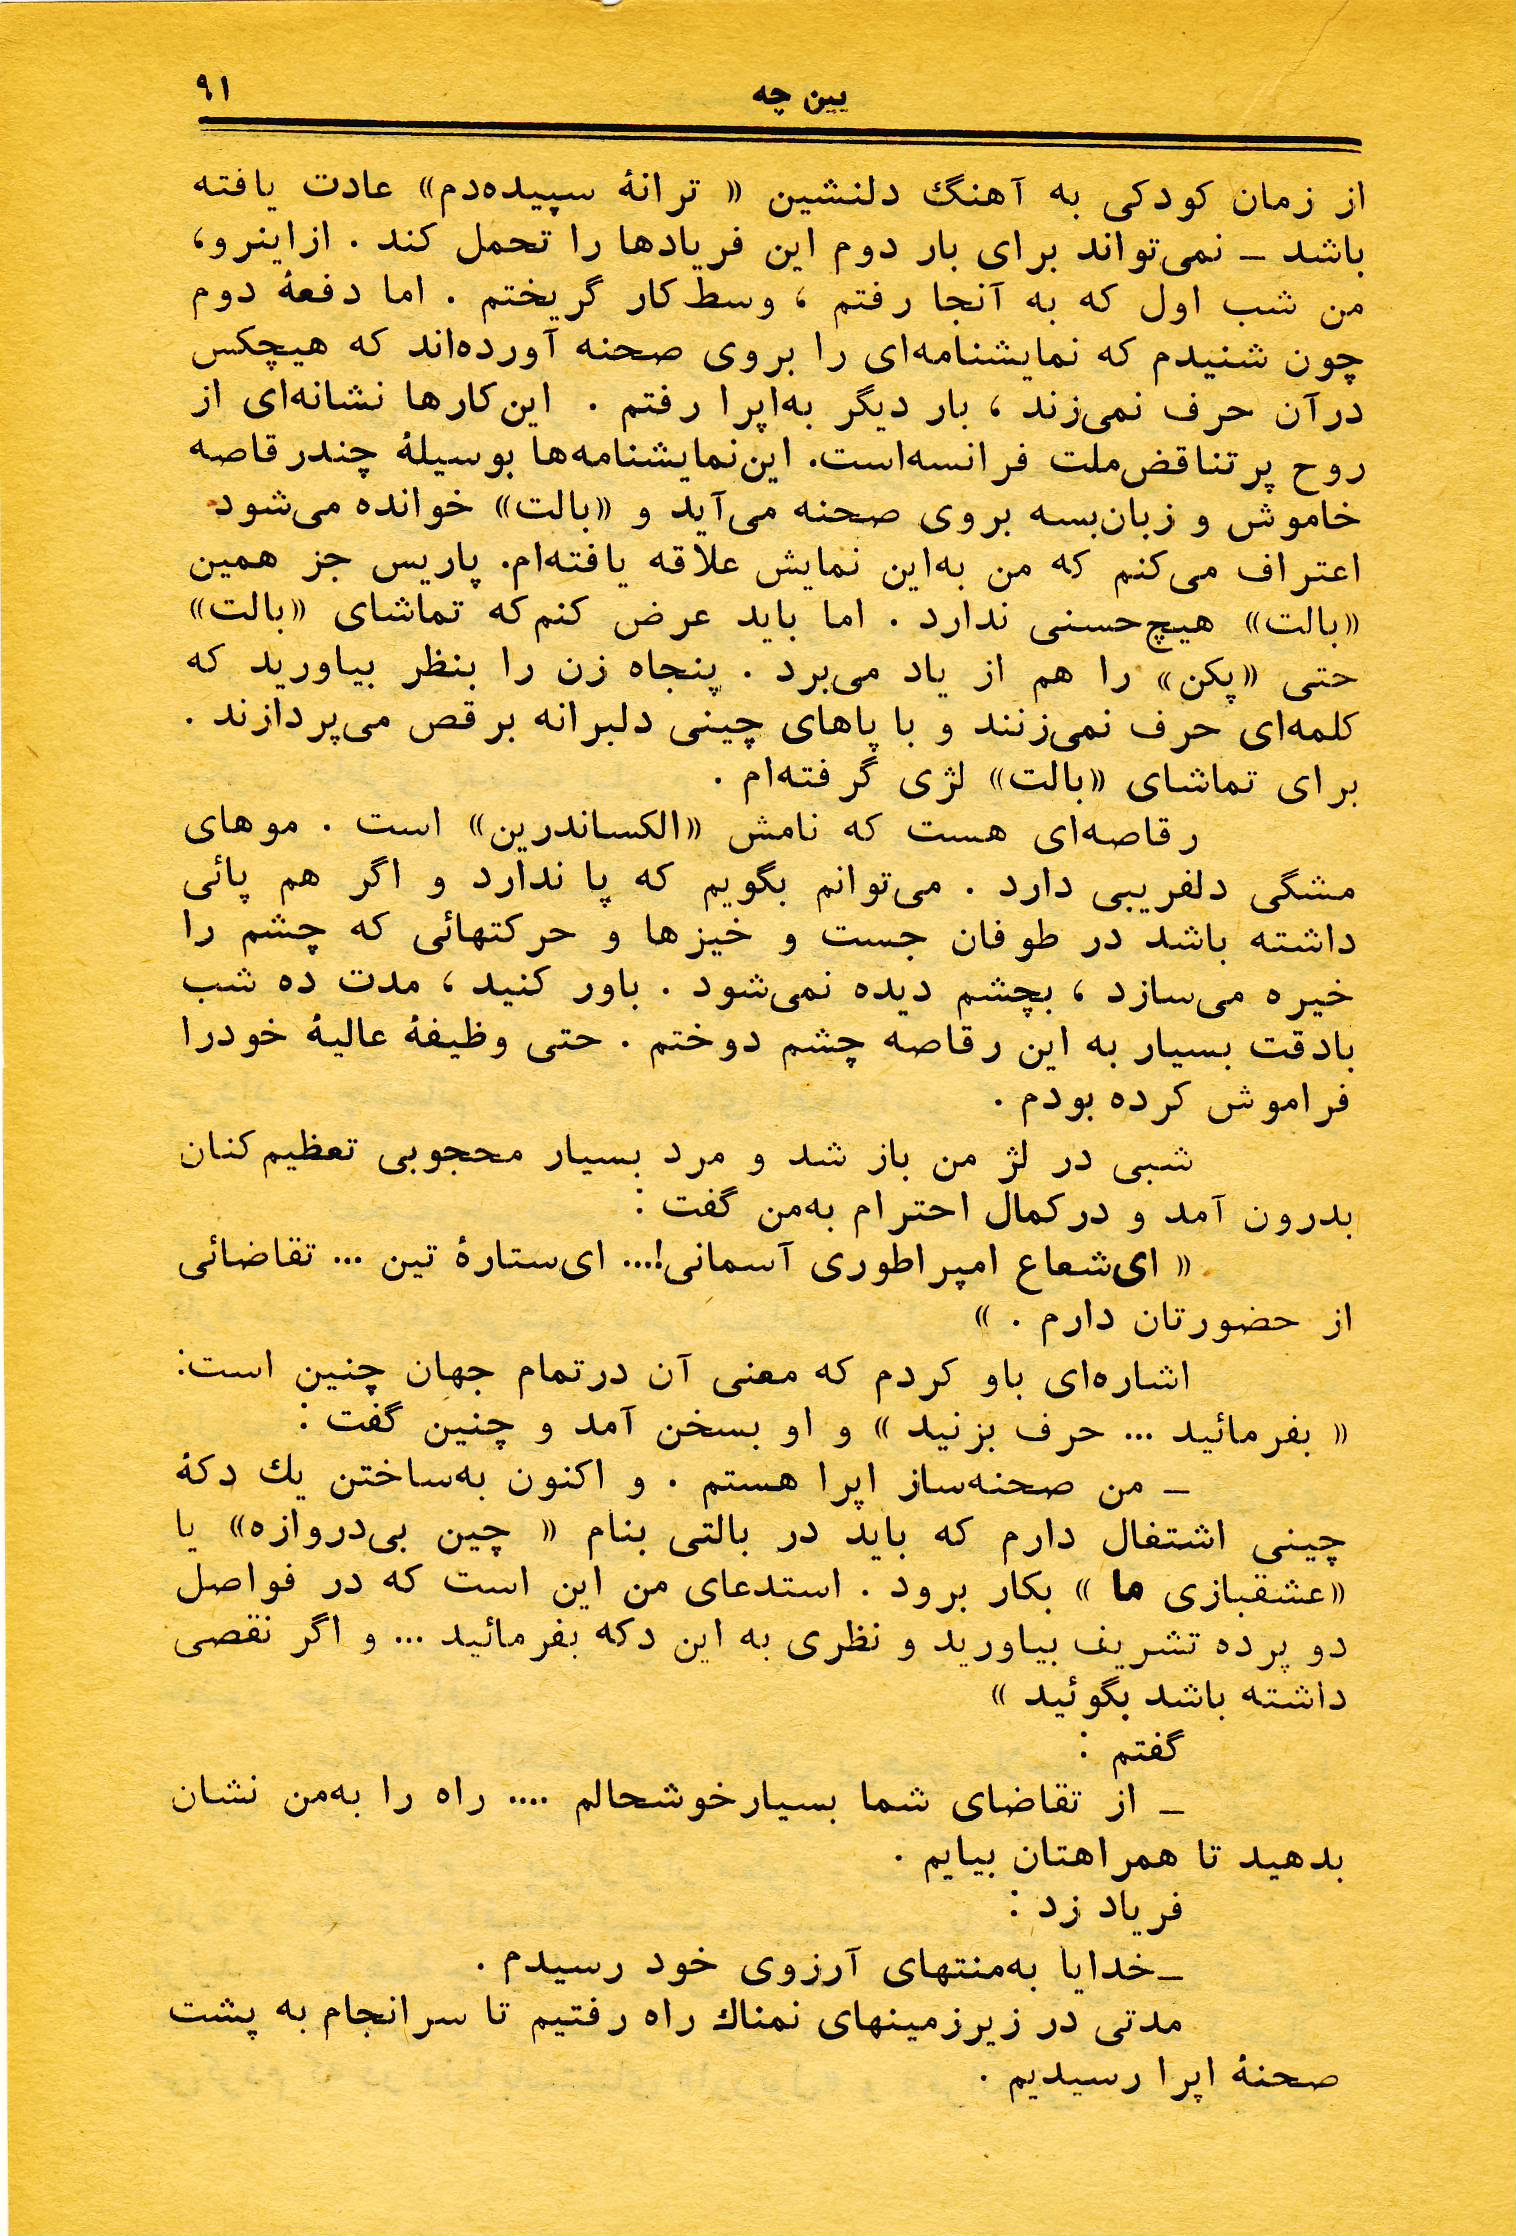 یین چه ۹۱
از زمان کودکی به آهنگ دلنشین « ترانهٔ سپیده‌دم» عادت یافته
باشد ـ نمی‌تواند برای بار دوم این فریادها را تحمل کند . ازاینرو،
من شب اول که به آنجا رفتم ، وسط کار گریختم . اما دفعهٔ دوم
چون شنیدم که نمایشنامه‌ای را بروی صحنه آورده‌اند که هیچکس
درآن حرف نمی‌زند ، بار دیگر به‌اپرا رفتم . این‌کارها نشانه‌ای از
روح پرتناقض‌ملت فرانسه‌است. این‌نمایشنامه‌ها بوسیلهٔ چندرقاصه
خاموش و زبان‌بسه بروی صحنه می‌آید و «بالت» خوانده می‌شود
اعتراف می‌کنم که من به‌این نمایش علاقه یافته‌ام. پاریس جز همین
«بالت» هیچ‌حسنی ندارد . اما باید عرض کنم‌که تماشای «بالت»
حتی «پکن» را هم از یاد می‌برد . پنجاه زن را بنظر بیاورید که
کلمه‌ای حرف نمی‌زنند و با پاهای چینی دلبرانه برقص می‌پردازند .
برای تماشای «بالت» لژی گرفته‌ام .
رقاصه‌ای هست که نامش «الکساندرین» است . موهای
مشگی دلفریبی دارد . می‌توانم بگویم که پا ندارد و اگر هم پائی
داشته باشد در طوفان جست و خیزها و حرکتهائی که چشم را
خیره می‌سازد ، بچشم دیده نمی‌شود . باور کنید ، مدت ده شب
بادقت بسیار به این رقاصه چشم دوختم . حتی وظیفهٔ عالیهٔ خودرا
فراموش کرده بودم .
شبی در لژ من باز شد و مرد بسیار محجوبی تعظیم‌کنان
بدرون آمد و درکمال احترام به‌من گفت :
« ای‌شعاع امپراطوری آسمانی!... ای‌ستارهٔ تین ... تقاضائی
از حضورتان دارم . »
اشاره‌ای باو کردم که معنی آن درتمام جهان چنین است:
« بفرمائید ... حرف بزنید » و او بسخن آمد و چنین گفت :
ـ من صحنه‌ساز اپرا هستم . و اکنون به‌ساختن یك دکهٔ
چینی اشتغال دارم که باید در بالتی بنام « چین بی‌دروازه» یا
«عشقبازی ما » بکار برود . استدعای من این است که در فواصل
دو پرده تشریف بیاورید و نظری به این دکه بفرمائید ... و اگر نقصی
داشته باشد بگوئید »
گفتم :
ـ از تقاضای شما بسیارخوشحالم .... راه را به‌من نشان
بدهید تا همراهتان بیایم .
فریاد زد :
ـ‌خدایا به‌منتهای آرزوی خود رسیدم .
مدتی در زیرزمینهای نمناك راه رفتیم تا سرانجام به پشت
صحنهٔ اپرا رسیدیم .